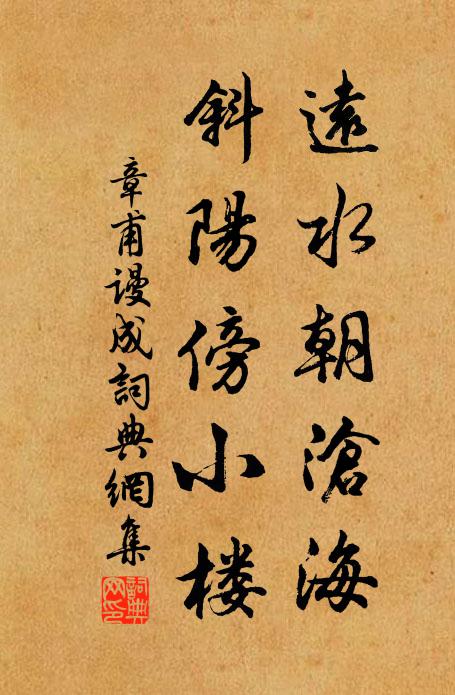 遠水朝滄海
斜陽傍小楼
章甫谩成詞典網集
詞典網印